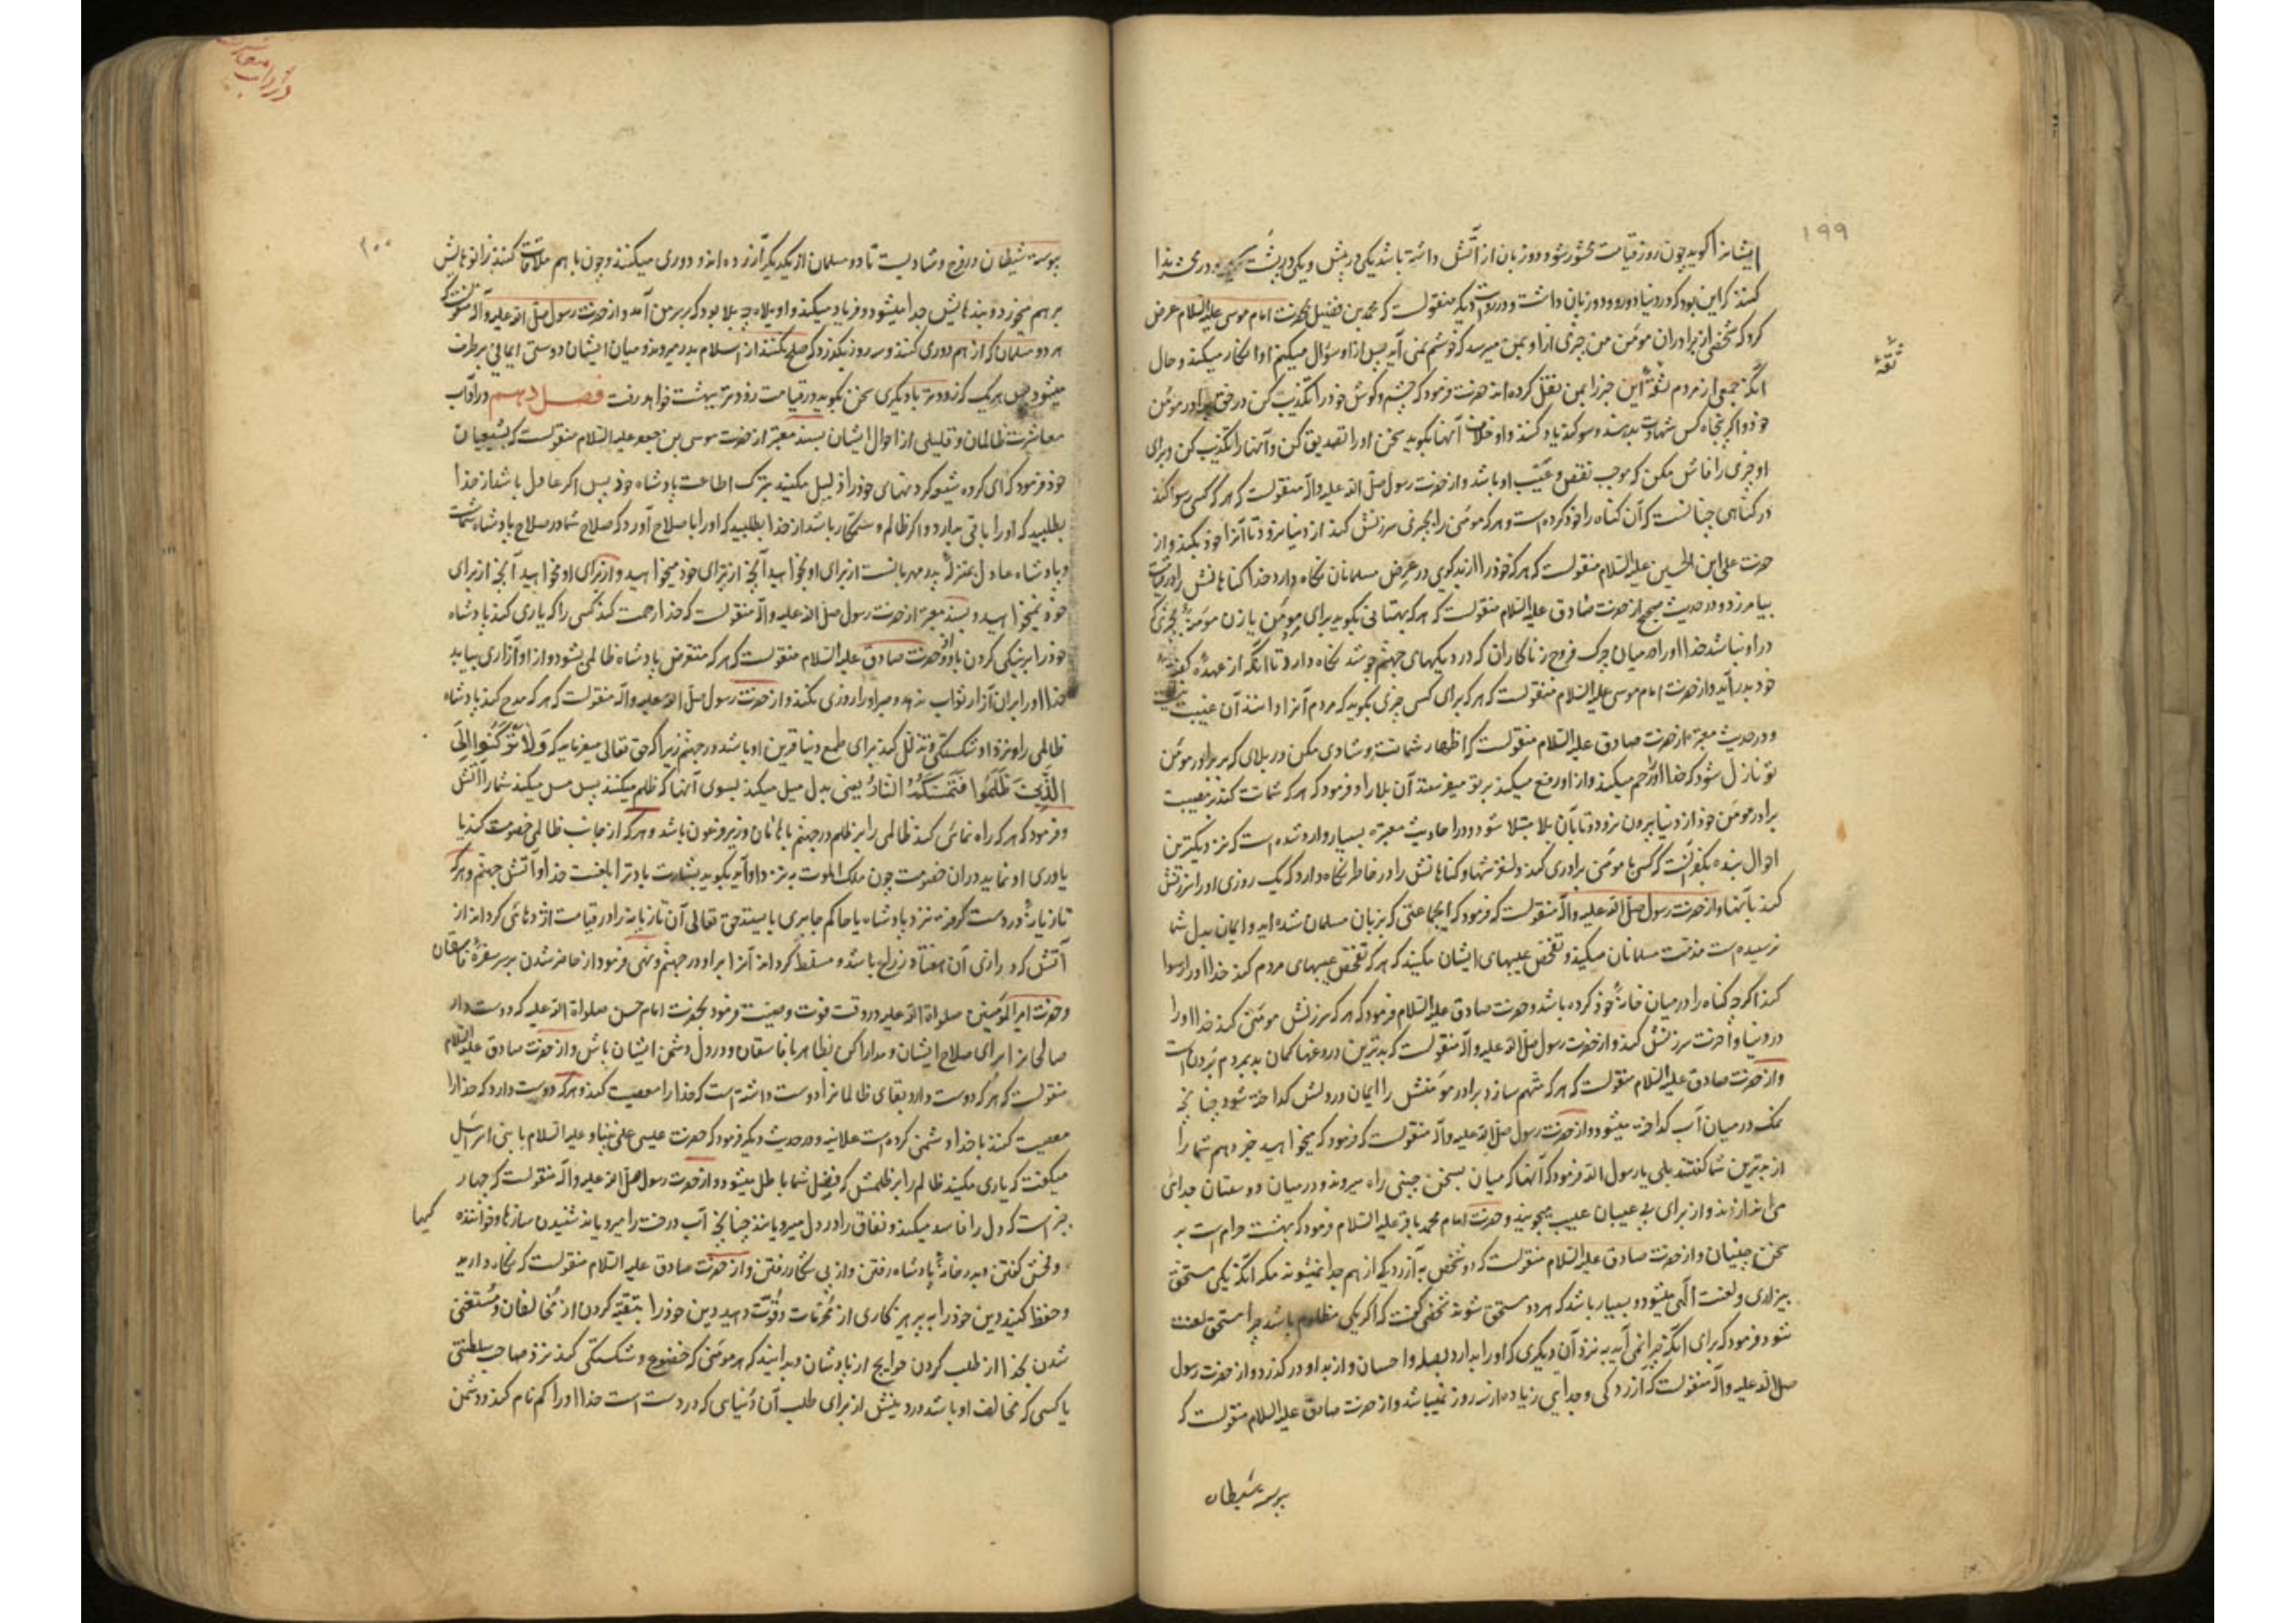 ۱۹۹
ایشانرا کوید چون روز قیامت محشور شود دو زبان از آتش داشته باشد یکی در پیش و یکی در پشت سر و در محشر ندا
کنند که این بود که در دنیا دو رو و دو زبان داشت و در روایت دیکر منقولست که محمد بن فضیل بحضرت امام موسی علیه السلام عرض
کرد که شخصی از برادران مؤمن من چیزی از او بمن میرسد که خوشم نمی آید پس از او سؤال میکنم او انکار میکند و حال
آنکه جمعی از مردم ثقه این خبر را بمن نقل کرده اند حضرت فرمود که چشم و کوش خود را تکذیب کن در حق برادر مؤمن
ثقه
خود و اکر پنجاه کس شهادت بدهند و سوکند یاد کنند و او خلاف آنها بکوید سخن او را تصدیق کن و آنها را تکذیب کن و برای
او چیزی را فاش مکن که موجب نقص و عیب او باشد و از حضرت رسول صلی الله علیه و آله منقولست که هر که کسی رسوا کند
در کناهی چنانست که آن کناه را خود کرده است و هر که مؤمنی را بچیزی سرزنش کند از دنیا نرود تا آنرا خود بکند و از
حضرت علی ابن الحسین علیه السلام منقولست که هر که خود را از بدکویی در عرض مسلمانان نکاه دارد خدا کناهانش را در قیامت
بیامرزد و در حدیث صحیح از حضرت صادق علیه السلام منقولست که هر که بهتانی بکوید برای مؤمن یا زن مؤمنه بچیزی که
در او نباشد خدا او را در میان چرک فروج زناکاران که در دیکهای جهنم جوشد نکاه دارد تا آنکه از عهده کفته
خود بدر آید و از حضرت امام موسی علیه السلام منقولست که هر که برای کسی چیزی بکوید که مردم آنرا دانند آن غیبت نیست
و در حدیث معتبر از حضرت صادق علیه السلام منقولست که اظهار شماتت و شادی مکن در بلای که بر برادر مؤمن
تو نازل شود که خدا او را رحم میکند و از او رفع میکند بر تو میفرستد آن بلا را و فرمود که هر که شماتت کند در مصیبت
برادر مؤمن خود از دنیا بیرون نرود تا بآن بلا مبتلا شود و در احادیث معتبره بسیار وارد شده است که نزدیکترین
احوال بنده بکفر آنست که کسی با مؤمنی برادری کند و لغزشها و کناهانش را در خاطر نکاه دارد که یک روزی او را سرزنش
کند بآنها و از حضرت رسول صلی الله علیه و آله منقولست که فرمود که ایجماعتی که بزبان مسلمان شده اید و ایمان بدل شما
نرسیده است مذمت مسلمانان میکنید و تفحص عیبهای ایشان مکنید که هر که تفحص عیبهای مردم کند خدا او را رسوا
کند اکرچه کناه را در میان خانه خود کرده باشد و حضرت صادق علیه السلام فرمود که هر که سرزنش مؤمنی کند خدا او را
در دنیا و آخرت سرزنش کند و از حضرت رسول صلی الله علیه و آله منقولست که بدترین دروغها کمان بد بمردم بردن است
و از حضرت صادق علیه السلام منقولست که هر که متهم سازد برادر مؤمنش را ایمان در دلش کداخته شود چنانچه
نمک در میان آب کداخته میشود و از حضرت رسول صلی الله علیه و آله منقولست که فرمود که میخواهید خبر دهم شما را
از بدترین شما کفتند بلی یا رسول الله فرمود که آنها که میان بسخن چینی راه میروند و در میان دوستان جدائی
می اندازند و از برای بی عیبان عیب میجویند و حضرت امام محمد باقر علیه السلام فرمود که بهشت حرام است بر
سخن چینیان و از حضرت صادق علیه السلام منقولست که دو شخص به آزردکی از هم جدا نمیشوند مکر آنکه یکی مستحق
بیزاری و لعنت آلهی میشود و بسیار باشد که هر دو مستحق شوند شخصی کفت که اکر یکی مظلوم باشد چرا مستحق لعنت
شود فرمود که برای آنکه چرا نمی آید به نزد آن دیکری که او را بدارد بصله و احسان و از بد او درکذرد و از حضرت رسول
صلی الله علیه و آله منقولست که آزردکی و جدایی زیاده از سه روز نمیباشد و از حضرت صادق علیه السلام منقولست که
پیوسته شیطان
در آداب معاشرت
۲۰۰
پیوسته شیطان در فرح و شادیست تا دو مسلمان از یکدیکر آزرده اند و دوری میکنند و چون با هم ملاقات کنند زانوهایش
برهم میخورد و بندهایش جدا میشود و فریاد میکند واویلاه چه بلا بود که بر سر من آمد و از حضرت رسول صلی الله علیه و آله منقولست که
هر دو مسلمان که از هم دوری کنند و سه روز بکذرد که صلح نکنند از اسلام بدر میروند و میان ایشان دوستی ایمانی برطرف
میشود پس هر یک که زودتر با دیکری سخن بکوید در قیامت زودتر بهشت خواهد رفت فصل دهم در آداب
معاشرت ظالمان و قلیلی از احوال ایشان بسند معتبر از حضرت موسی بن جعفر علیه السلام منقولست که بشیعیان
خود فرمود که ای کروه شیعه کردنهای خود را ذلیل مکنید بترک اطاعت پادشاه خود پس اکر عادل باشد از خدا
بطلبید که او را باقی بدارد و اکر ظالم و ستمکار باشد از خدا بطلبید که او را باصلاح آورد که صلاح شما در صلاح پادشاه شماست
و پادشاه عادل بمنزله پدر مهربانست از برای او بخواهید آنچه از برای خود میخواهید و از برای او نخواهید آنچه از برای
خود نمیخواهید و بسند معتبر از حضرت رسول صلی الله علیه و آله منقولست که خدا رحمت کند کسی را که یاری کند پادشاه
خود را بر نیکی کردن باو و از حضرت صادق علیه السلام منقولست که هر که متعرض پادشاه ظالمی بشود و از او آزاری بیابد
خدا او را بر آن آزار ثواب ندهد و صبر او را روزی نکند و از حضرت رسول صلی الله علیه و آله منقولست که هر که مدح کند پادشاه
ظالمی را و نزد او شکستکی و تذلل کند برای طمع دنیا قرین او باشد در جهنم زیرا که حق تعالی میفرماید که وَلا تَرْکَنُوا اِلَی
الَّذِینَ ظَلَمُوا فَتَمَسَّکُمُ النّارُ یعنی بدل میل میکند بسوی آنها که ظلم میکنند پس مس میکند شما را آتش
و فرمود که هر که راه نمائی کند ظالمی را بر ظلم در جهنم با هامان وزیر فرعون باشد و هر که از جانب ظالمی خصومت کند یا
یاری او نماید در آن خصومت چون ملک الموت به نزد او آید بکوید بشارت باد ترا بلعنت خدا و آتش جهنم و هر که
تازیانه در دست کرفته نزد پادشاه یا حاکم جابری بایستد حق تعالی آن تازیانه را در قیامت اژدهائی کرداند از
آتش که درازی آن هفتاد زراع باشد و مسلط کرداند آنرا بر او در جهنم و نهی فرمود از حاضر شدن بر سر سفره فاسقان
و حضرت امیر المؤمنین صلواة الله علیه در وقت فوت وصیت فرمود بحضرت امام حسن صلواة الله علیه که دوست دار
صالحانرا برای صلاح ایشان و مدارا کن بظاهر با فاسقان و در دل دشمن ایشان باش و از حضرت صادق علیه السلام
منقولست که هر که دوست دارد بقای ظالمانرا دوست داشته است که خدا را معصیت کنند و هر که دوست دارد که خدا را
معصیت کنند با خدا دشمنی کرده است علانیه و در حدیث دیکر فرمود که حضرت عیسی علی نبینا و علیه السلام با بنی اسرائیل
میکفت که یاری مکنید ظالم را بر ظلمش که فضل شما باطل میشود و از حضرت رسول صلی الله علیه و آله منقولست که چهار
چیز است که دل را فاسد میکند و نفاق را در دل میرویاند چنانچه آب درخت را میرویاند شنیدن سازها و خوانندها
و فحش کفتن و بدر خانه پادشاه رفتن و از پی شکار رفتن و از حضرت صادق علیه السلام منقولست که نکاه دارید
و حفظ کنید دین خود را به پرهیزکاری از محرمات و قوّت دهید دین خود را بتقیه کردن از مخالفان و مستغنی
شدن بخدا از طلب کردن حوایج از پادشان و بدانید که هر مؤمنی که خضوع و شکستکی کند نزد صاحب سلطنتی
یا کسی که مخالف او باشد در دینش از برای طلب آن دنیای که در دست است خدا او را کم نام کند و دشمن